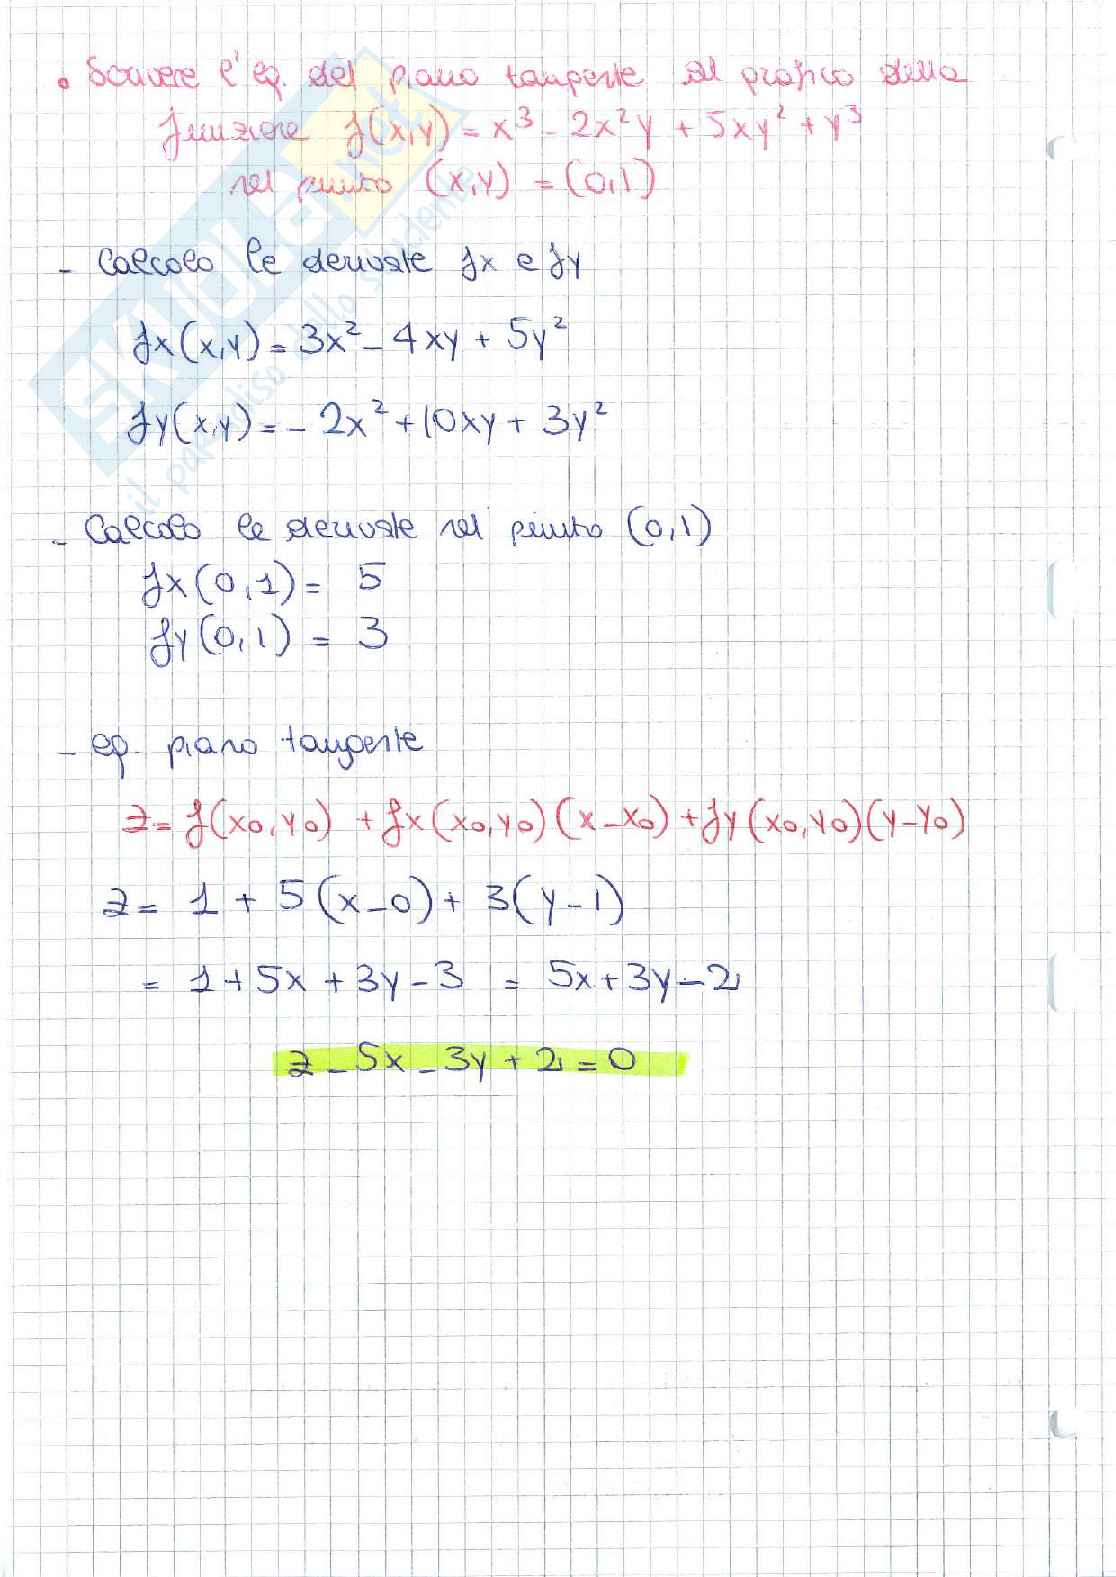 • Scrivere l'eq. del piano tangente al grafico della
funzione f(x,y) = x³ - 2x²y + 5xy² + y³
nel punto (x,y) = (0,1)
- Calcolo le derivate fx e fy
fx(x,y) = 3x² - 4xy + 5y²
fy(x,y) = - 2x² + 10xy + 3y²
- Calcolo le derivate nel punto (0,1)
fx(0,1) = 5
fy(0,1) = 3
- eq. piano tangente
z = f(x0,y0) + fx(x0,y0)(x-x0) + fy(x0,y0)(y-y0)
z = 1 + 5(x-0) + 3(y-1)
= 1 + 5x + 3y - 3 = 5x + 3y - 2
z - 5x - 3y + 2 = 0
SKUOLA.net
il paradiso dello studente